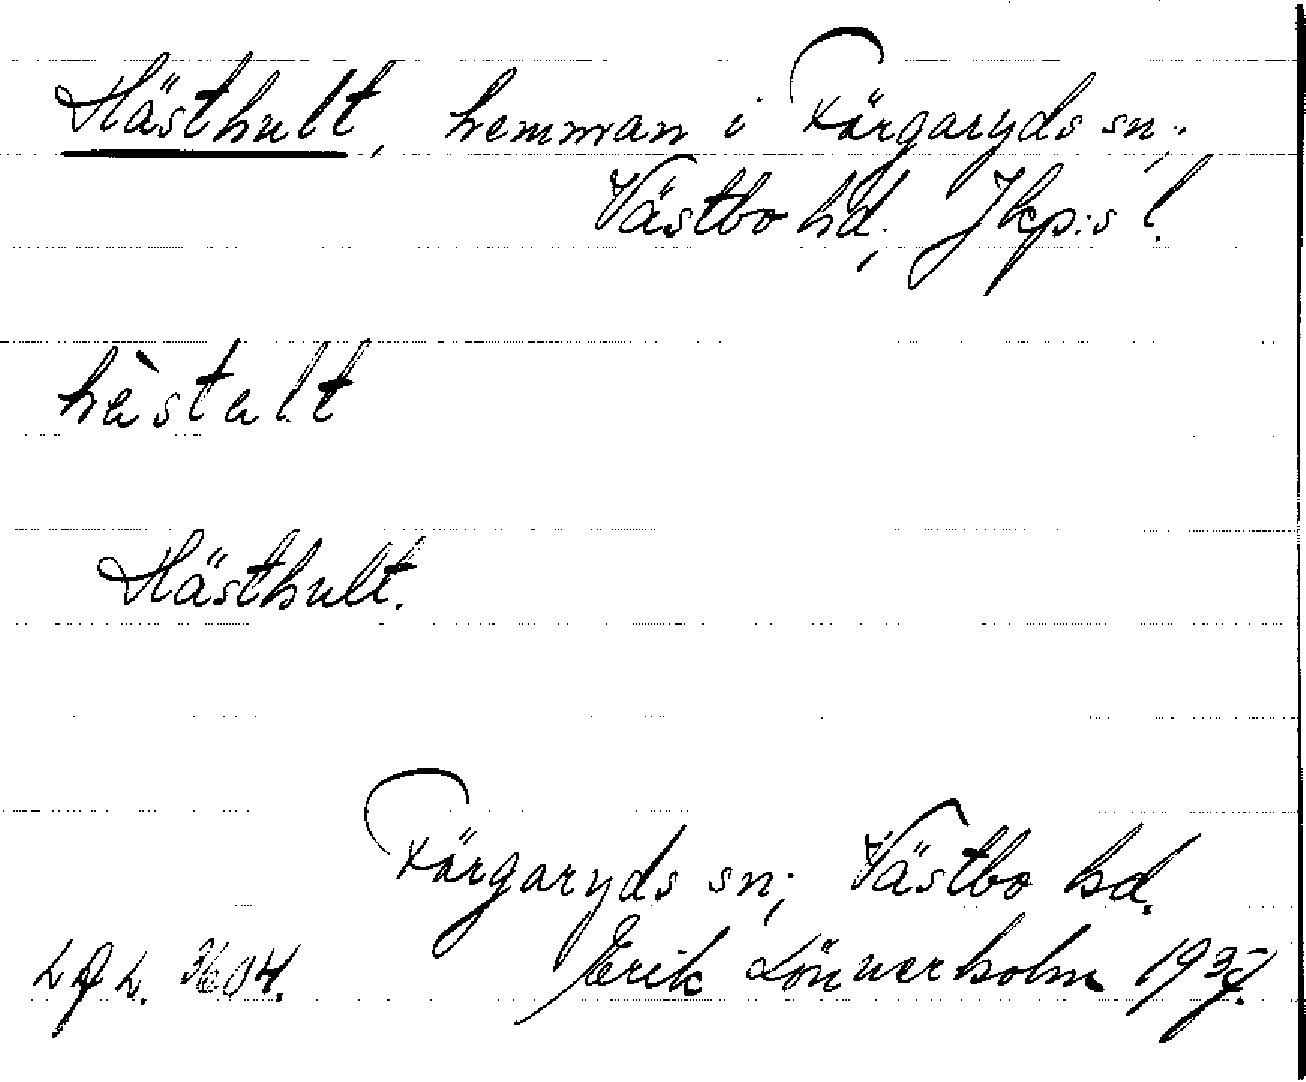 Hästhult, hemman i Färgaryds sn.,
Västbo hd., Jkp:s l.
hästalt
Hästhult.
Färgaryds sn., Västbo hd.
Erik Lönnerholm 1937.